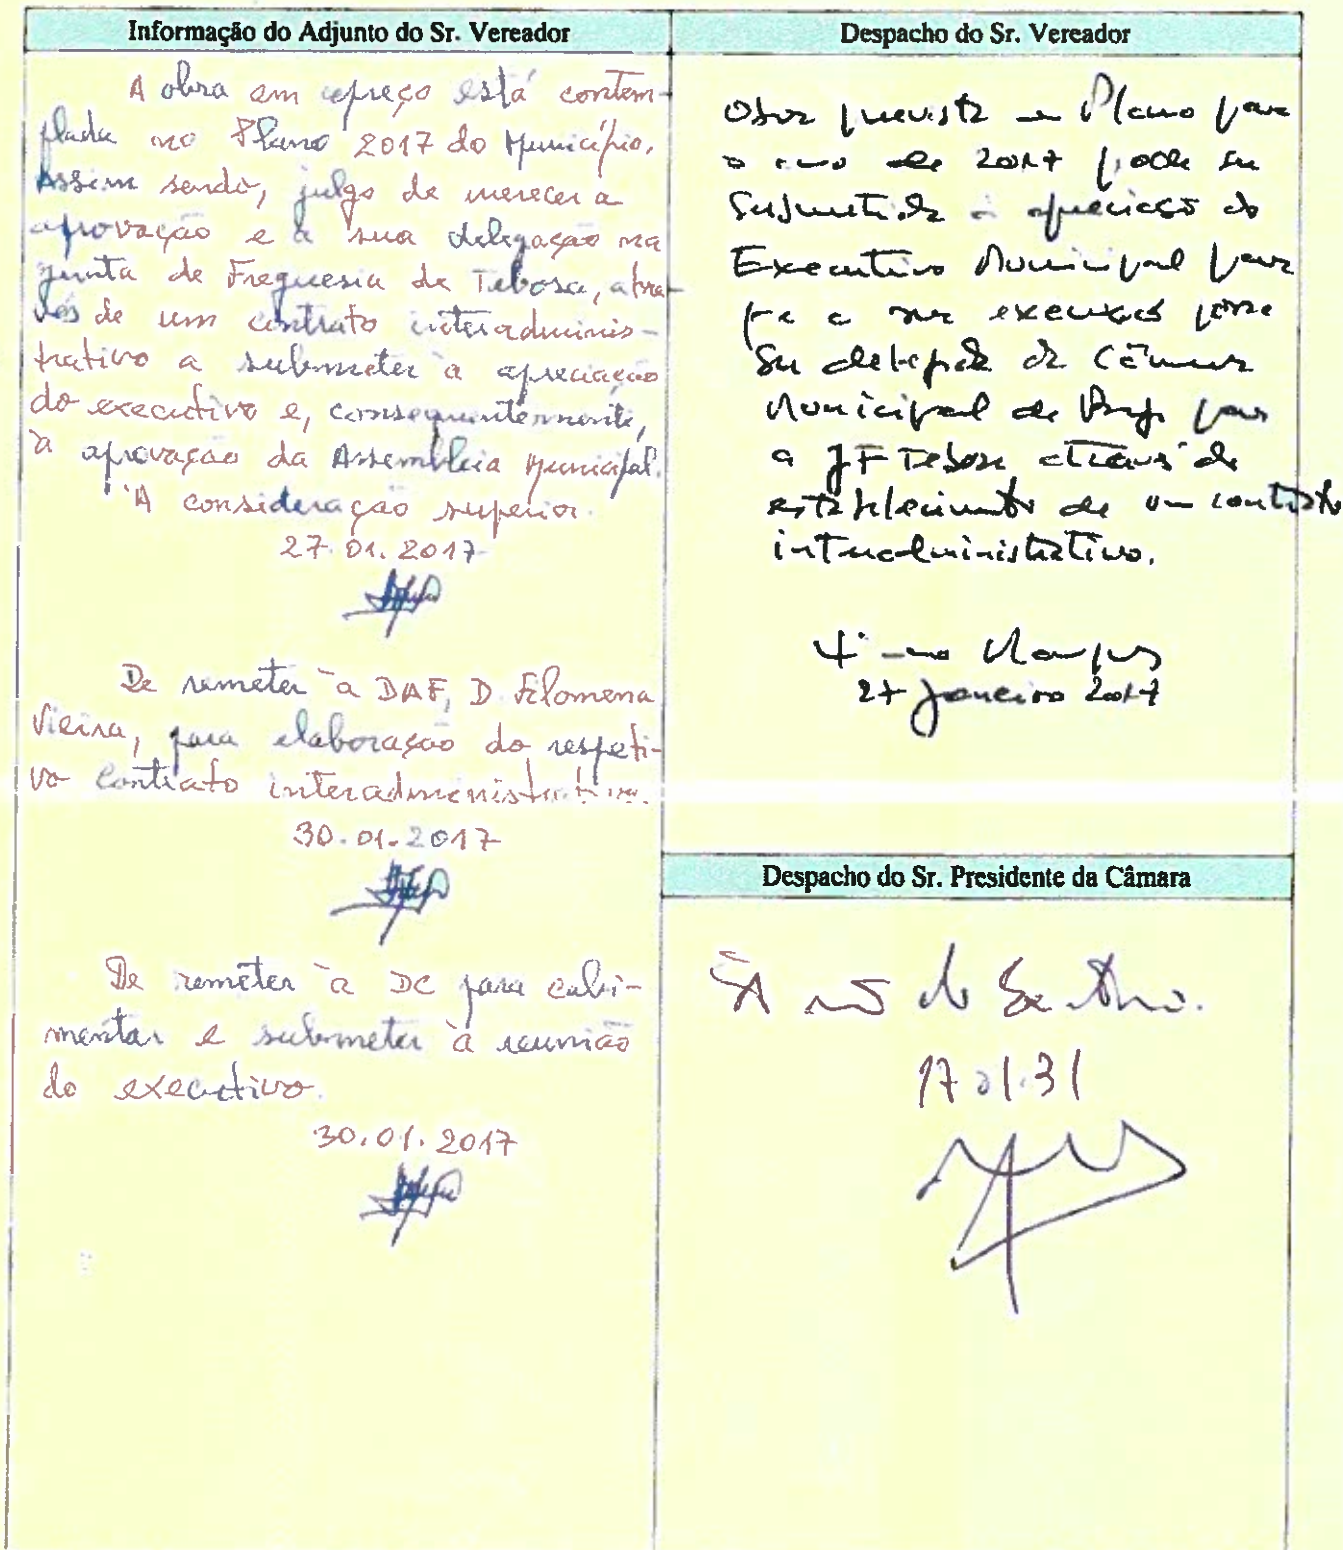 Informação do Adjunto do Sr. Vereador
A obra em apreço está contem-
plada no Plano 2017 do Município.
Assim sendo, julgo de merecer a
aprovação e a sua delegação na
Junta de Freguesia de Tebosa, atra-
vés de um contrato interadminis-
trativo a submeter à apreciação
do executivo e, consequentemente,
à aprovação da Assembleia Municipal.
À consideração superior.
27.01.2017
De remeter à DAF, D. Filomena
Vieira, para elaboração do respeti-
vo contrato interadministrativo.
30.01.2017
De remeter à DC para cabi-
mentar e submeter à reunião
do executivo.
30.01.2017
Despacho do Sr. Vereador
Obra prevista em Plano para
o ano de 2017 pode ser
submetida à apreciação do
Executivo Municipal para
que a sua execução possa
ser delegada da Câmara
Municipal de Braga para
a JF Tebosa através do
estabelecimento de um contrato
interadministrativo.
27 Janeiro 2017
Despacho do Sr. Presidente da Câmara
17.01.31